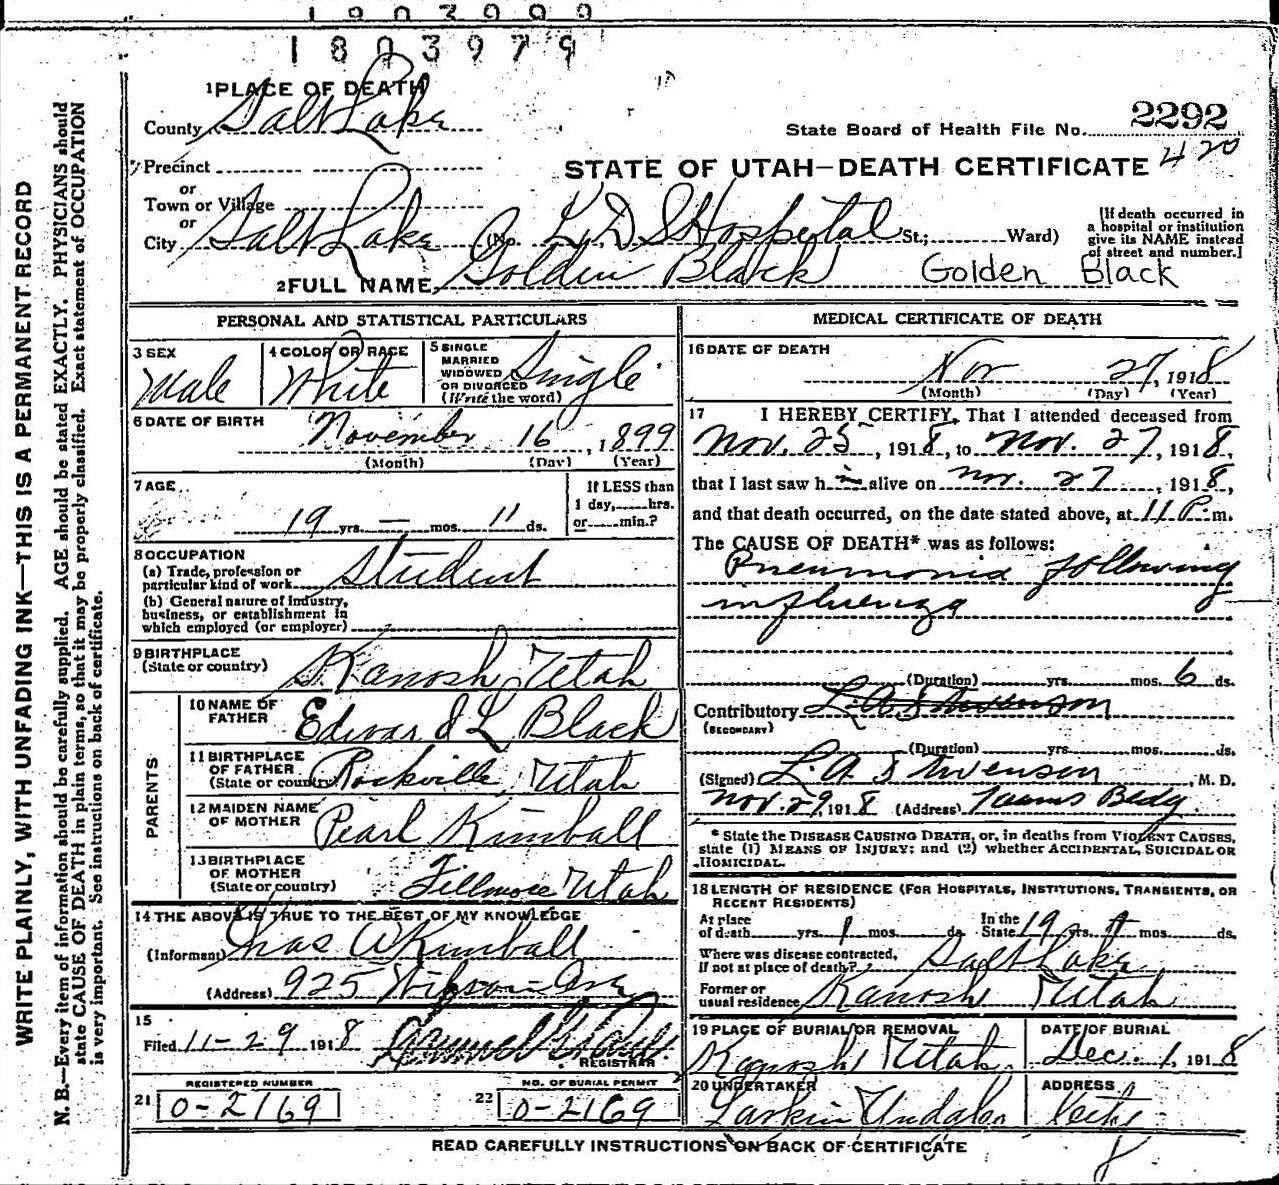 1803979
1 PLACE OF DEATH
County Salt Lake
State Board of Health File No. 2292
Precinct
STATE OF UTAH—DEATH CERTIFICATE 420
or
Town or Village
or
City Salt Lake (No. L D S Hospital St.; Ward)
[If death occurred in
a hospital or institution
give its NAME instead
of street and number.]
2 FULL NAME Golden Black Golden Black
PERSONAL AND STATISTICAL PARTICULARS
3 SEX Male
4 COLOR OR RACE White
5 SINGLE
MARRIED
WIDOWED
OR DIVORCED
(Write the word) Single
6 DATE OF BIRTH
November 16, 1899
(Month) (Day) (Year)
7 AGE
19 yrs. — mos. 11 ds.
If LESS than
1 day, hrs.
or min.?
8 OCCUPATION
(a) Trade, profession or
particular kind of work Student
(b) General nature of industry,
business, or establishment in
which employed (or employer)
9 BIRTHPLACE
(State or country) Kanosh Utah
PARENTS
10 NAME OF
FATHER Edward L Black
11 BIRTHPLACE
OF FATHER
(State or country) Rockville, Utah
12 MAIDEN NAME
OF MOTHER Pearl Kimball
13 BIRTHPLACE
OF MOTHER
(State or country) Fillmore Utah
14 THE ABOVE IS TRUE TO THE BEST OF MY KNOWLEDGE
(Informant) Chas W Kimball
(Address) 925
15
Filed 11-29 1918
REGISTRAR
REGISTERED NUMBER
21 0-2169
NO. OF BURIAL PERMIT
22 0-2169
MEDICAL CERTIFICATE OF DEATH
16 DATE OF DEATH
Nov 27, 1918
(Month) (Day) (Year)
17 I HEREBY CERTIFY, That I attended deceased from
Nov. 25, 1918, to Nov. 27, 1918,
that I last saw h im alive on Nov. 27, 1918,
and that death occurred, on the date stated above, at 11 P. m.
The CAUSE OF DEATH* was as follows:
Pneumonia following
influenza
(Duration) yrs. mos. 6 ds.
Contributory L. A. Stevenson
(SECONDARY)
(Duration) yrs. mos. ds.
(Signed) L A Stevenson, M. D.
Nov. 29, 1918 (Address) Bldg.
* State the DISEASE CAUSING DEATH, or, in deaths from VIOLENT CAUSES,
state (1) MEANS OF INJURY; and (2) whether ACCIDENTAL, SUICIDAL OR
HOMICIDAL.
18 LENGTH OF RESIDENCE (FOR HOSPITALS, INSTITUTIONS, TRANSIENTS, OR
RECENT RESIDENTS)
At place
of death yrs. 1 mos. ds.
In the
State 19 yrs. mos. ds.
Where was disease contracted,
If not at place of death? Salt Lake
Former or
usual residence Kanosh Utah
19 PLACE OF BURIAL OR REMOVAL
Kanosh, Utah.
DATE OF BURIAL
Dec. 1, 1918
20 UNDERTAKER
Larkin
ADDRESS
City
READ CAREFULLY INSTRUCTIONS ON BACK OF CERTIFICATE
WRITE PLAINLY, WITH UNFADING INK—THIS IS A PERMANENT RECORD
N. B.—Every item of information should be carefully supplied. AGE should be stated EXACTLY. PHYSICIANS should
state CAUSE OF DEATH in plain terms, so that it may be properly classified. Exact statement of OCCUPATION
is very important. See instructions on back of certificate.